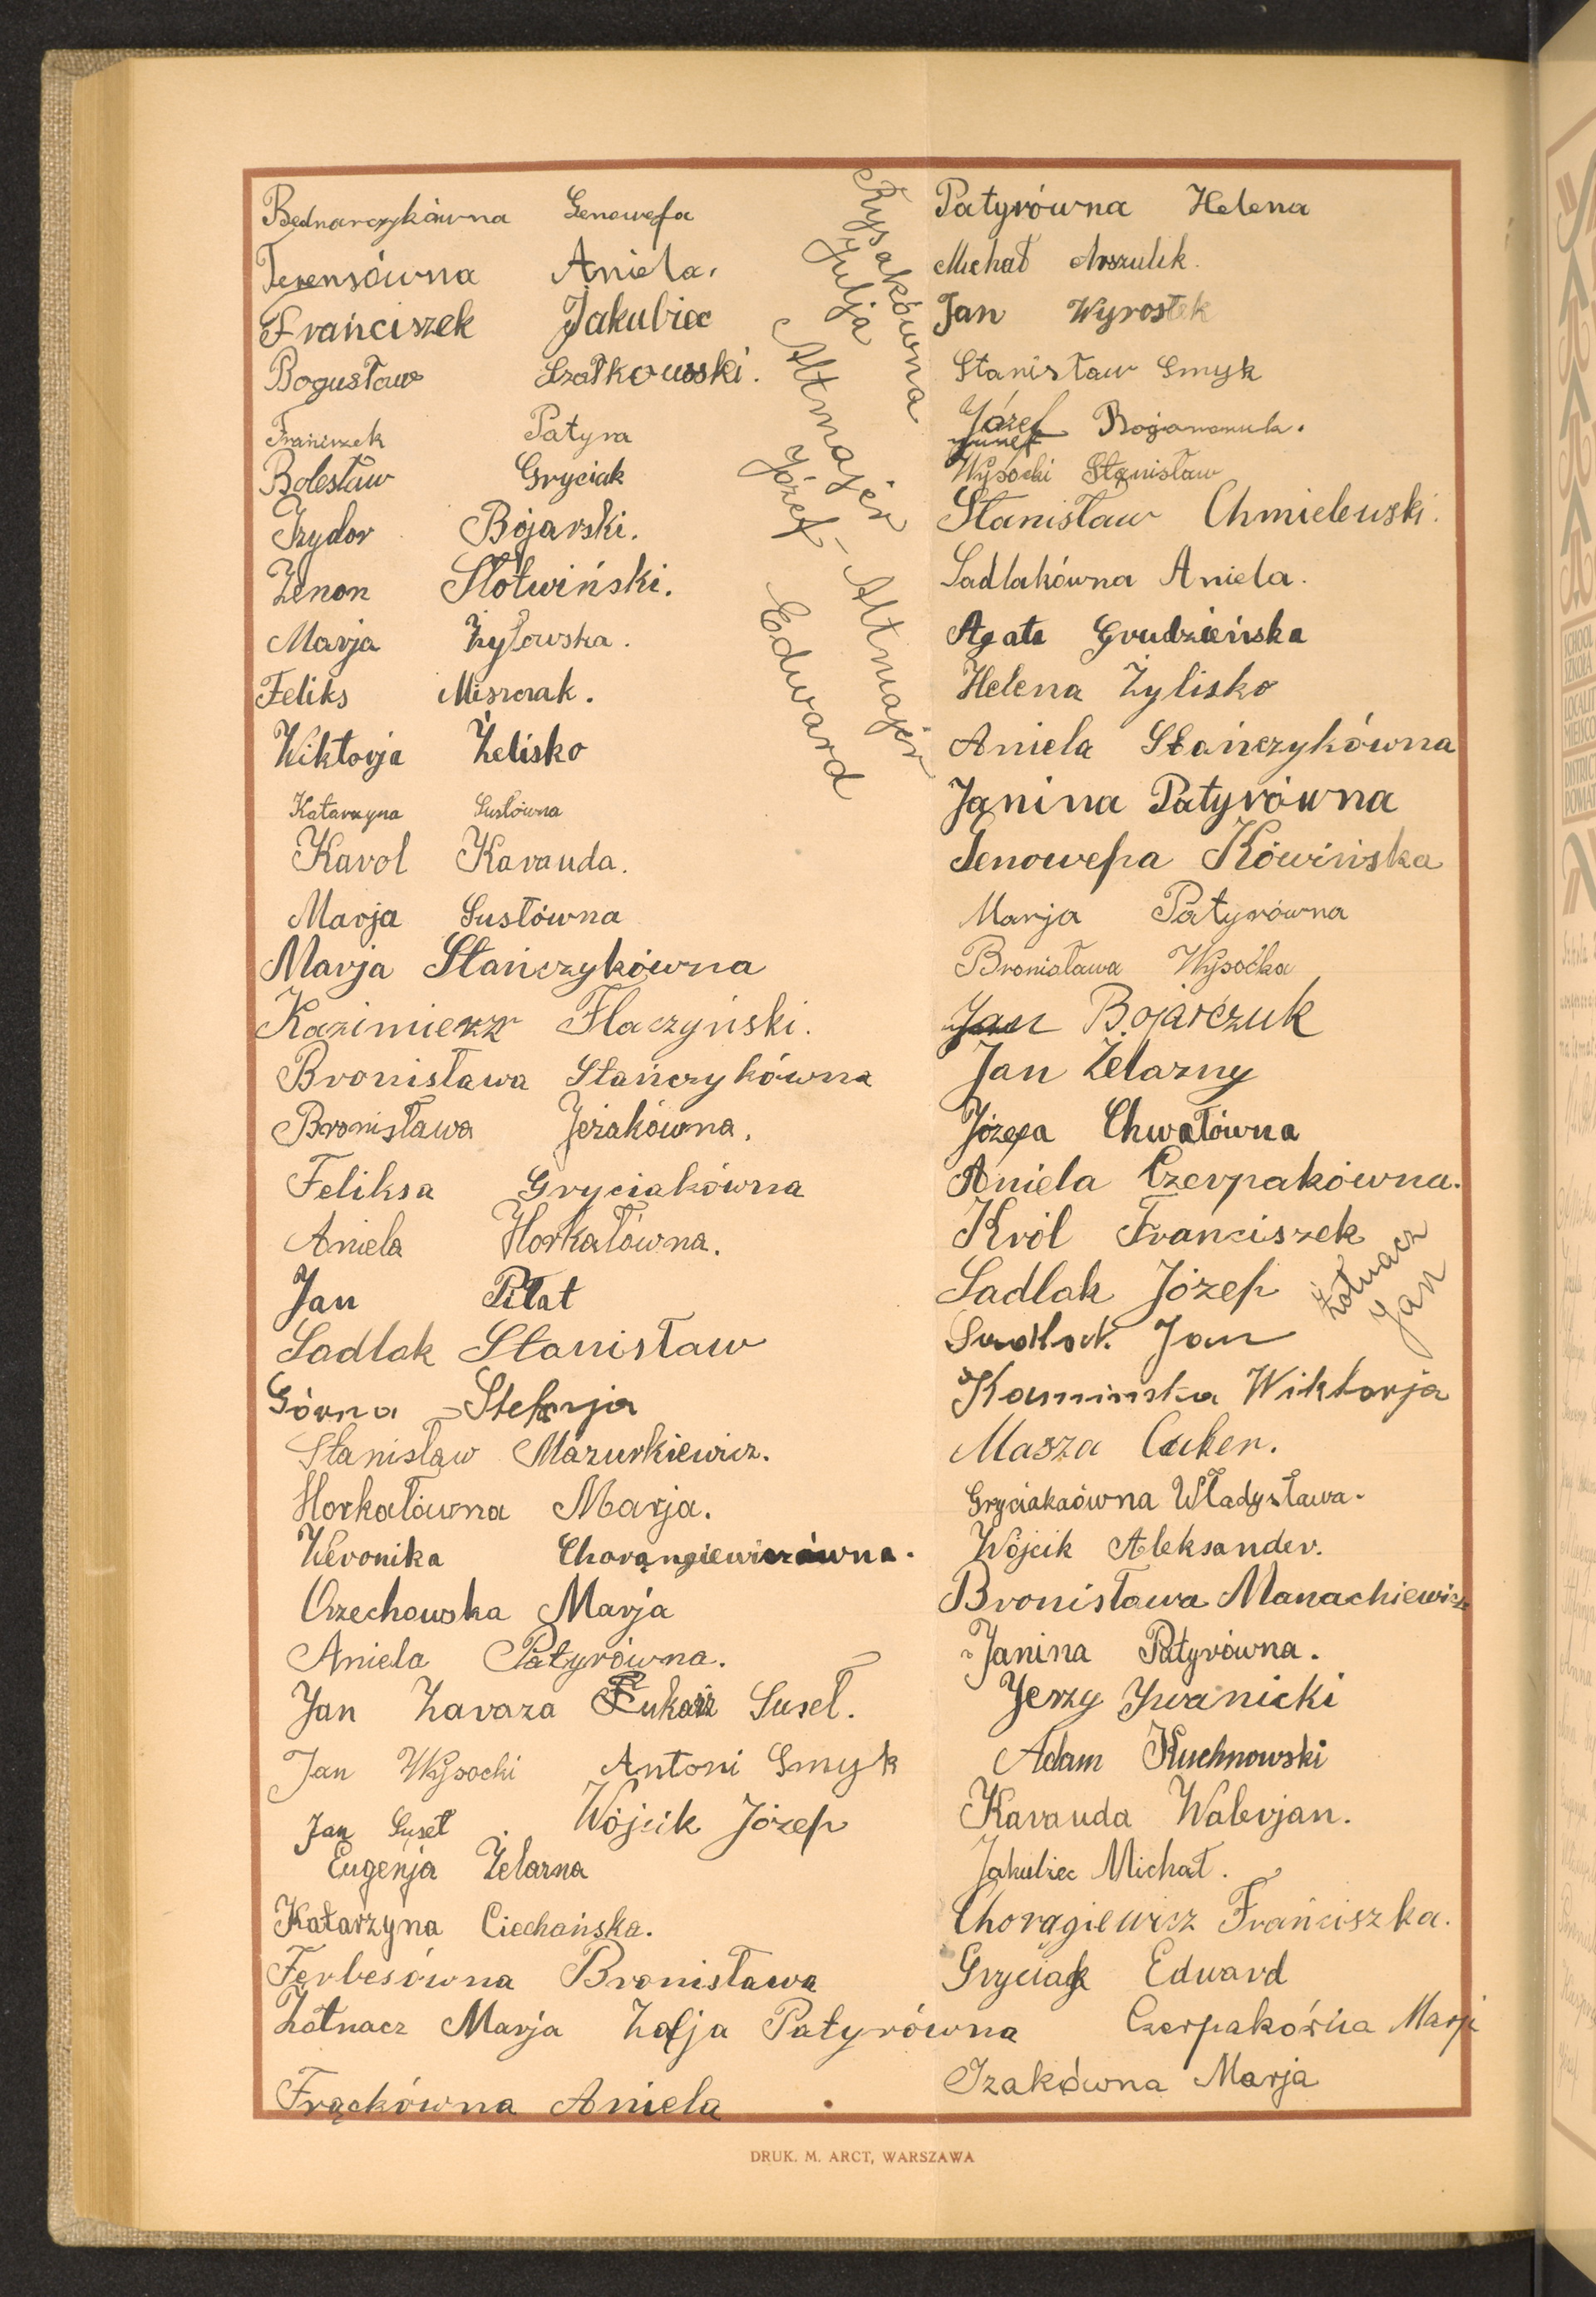 Bednarczykówna Genowefa
Terensówna Aniela.
Franciszek Jakubiec
Bogusław Szatkowski.
Franciszek Patyra
Bolesław Gryciak
Izydor Bojarski.
Zenon Słotwiński.
Marja Żyłowska.
Feliks Miszczak.
Wiktorja Żelisko
Katarzyna Susłówna
Karol Karauda.
Marja Susłówna
Marja Stańczykówna
Kazimierz Flaczyński.
Bronisława Stańczykówna
Bronisława Jeżakówna.
Feliksa Gryciakówna
Aniela Horkałówna.
Jan Piłat
Sadlak Stanisław
Górna Stefanja
Stanisław Mazurkiewicz.
Horkałówna Marja.
Weronika Chorąngiewiczówna.
Orzechowska Marja
Aniela Patyrówna.
Jan Zavaza Łukasz Suseł.
Jan Wysocki Antoni Smyk
Jan Suseł Wójcik Józef
Eugenja Żelazna
Katarzyna Ciechańska.
Ferbesówna Bronisława
Żołnacz Marja Zofja Patyrówna
Frąckówna Aniela
Rysakówna
Julja
Altmajer
Józef - Altmajer
Edward
Patyrówna Helena
Michał
Jan Wyrostek
Stanisław Smyk
Józef
Wysocki Stanisław
Stanisław Chmielewski.
Sadlakówna Aniela.
Agata Grudzieńska
Helena Żylisko
Aniela Stańczykówna
Janina Patyrówna
Genowefa Kówińska
Marja Patyrówna
Bronisława Wysocka
Jan Bojarczuk
Jan Żelazny
Józefa Chwałówna
Aniela Czerpakówna.
Król Franciszek
Sadlak Józef
Żołnacz
Jan
Sadlak Jan
Kaminska Wiktorja
Masza Cuker.
Gryciakaówna Władysława.
Wójcik Aleksander.
Bronisława Manachiewicz
Janina Patyrówna.
Jerzy Iwanicki
Adam Kuchnowski
Karauda Walerjan.
Jakubiec Michał.
Chorągiewicz Franciszka.
Gryciak Edward
Czerpakówna Marja
Izakówna Marja
DRUK. M. ARCT, WARSZAWA